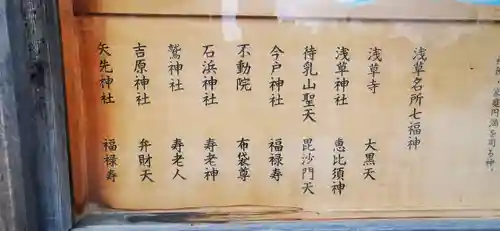 浅草名所七福神
浅草寺 大黒天
浅草神社 恵比須神
待乳山聖天 毘沙門天
今戸神社 福禄寿
不動院 布袋尊
石浜神社 寿老神
鷲神社 寿老人
吉原神社 弁財天
矢先神社 福禄寿